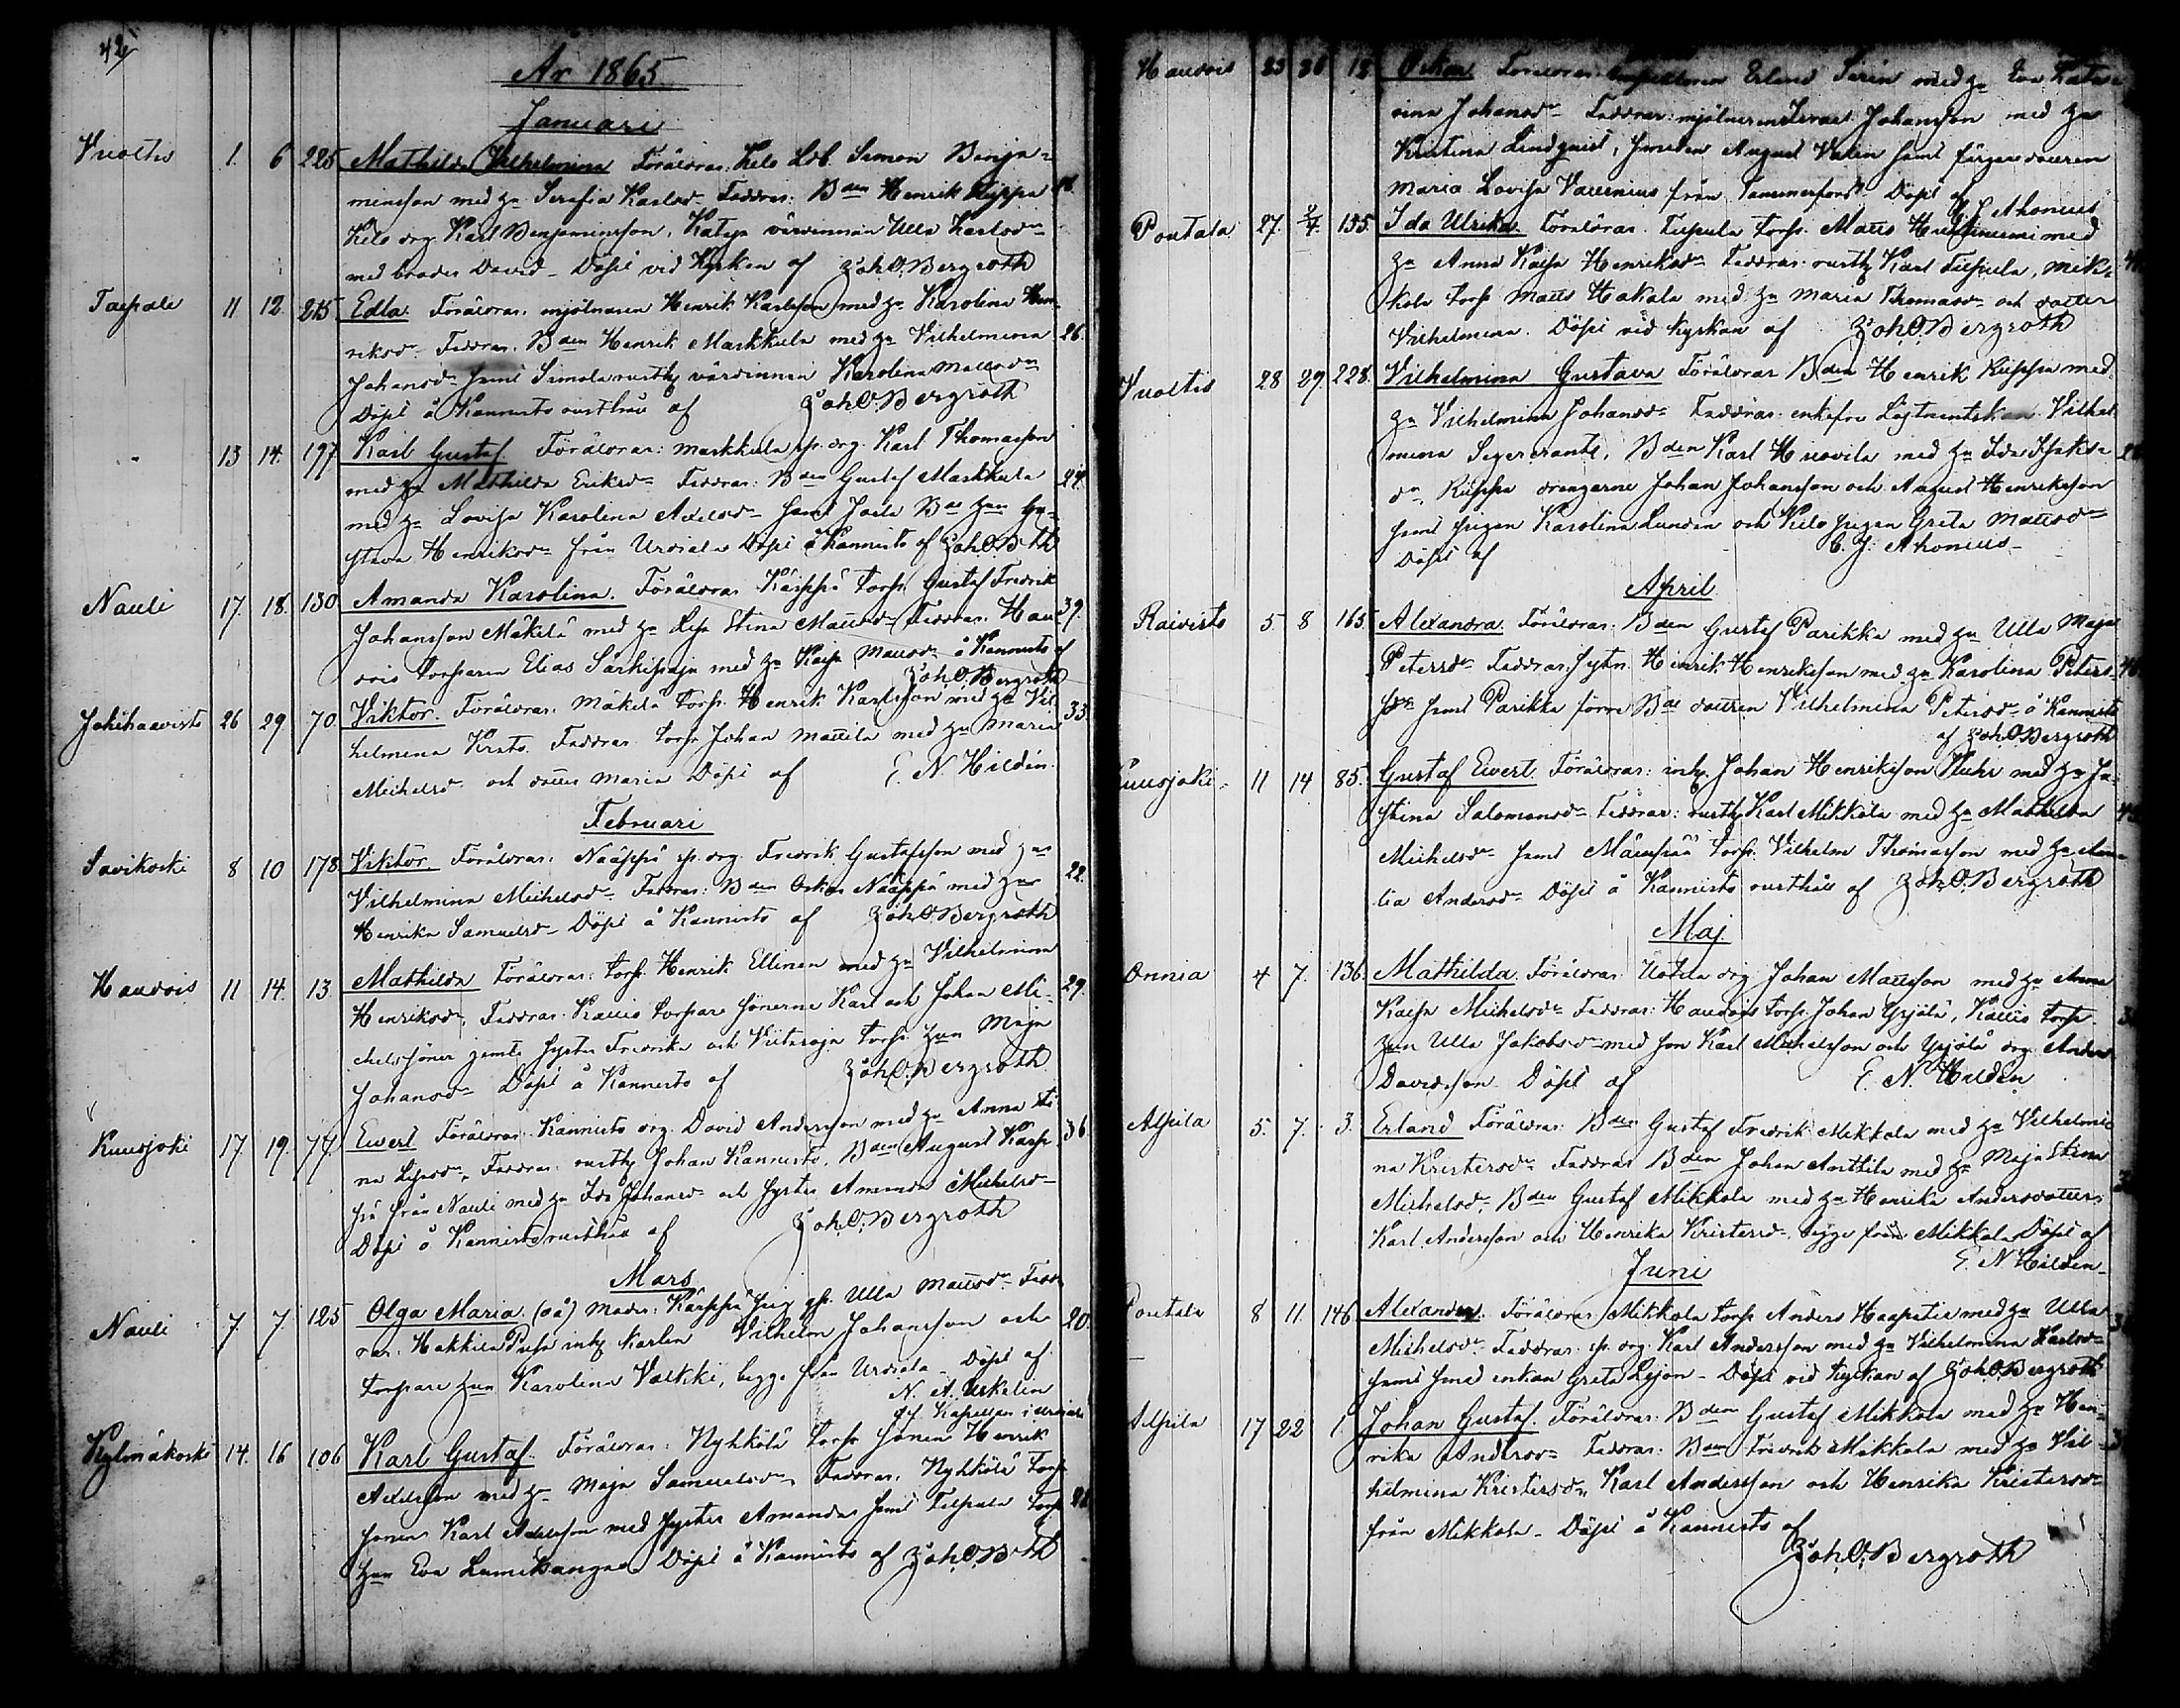 42
År 1865.
Januari
Vuoltis 1. 6 225 Mathilda Vilhelmina Föräldrar: Kelo Ldb. Simon Benja-
minsson med hu Serafia Karlsdr Faddrar: Bden Henrik Ruppa
Kelo drg. Karl Benjaminsson, värdinnan Ulla Karlsdr
med broder David. Döpt vid Kyrkan af Joh. O. Bergroth
Taipale 11 12. 215 Edla. Föräldrar: mjölnaren Henrik Karlsson med hu Karolina Hen-
riksdr Faddrar: Bden Henrik Markkula med hu Vilhelmina 26.
Johansdr samt Simola rusth värdinnan Karolina Mattsdr
Döpt å Kannisto rusthåll af Joh. O. Bergroth
" 13 14. 197 Karl Gustaf. Föräldrar: Markkula sp. drg. Karl Thomasson
med hu Mathilda Eriksdr Faddrar: Bden Gustaf Markkula 24.
med hu Lovisa Karolina Axelsdr samt
stava Henriksdr från Urdiala Döpt å Kannisto af Joh. O. B-th
Nauli 17. 18. 130 Amanda Karolina. Föräldrar: Käyppä torp. Gustaf Fredrik
Johansson Mäkelä med hu Lisa Stina Mattsdr Faddrar: Hau- 39.
dois torparen Elias Särkipaja med hu Kaisa Mattsdr å Kannisto af
Joh. O. Bergroth
Jokihaavisto 26 29. 70 Viktor. Föräldrar: Mäkelä torp. Henrik Karlsson med hu Vil- 33.
helmina Faddrar: torp Johan Mattila med hu Maria
Michelsdr och dotter Maria Döpt af E. N. Hildén.
Februari
Savikoski 8 10 178 Viktor. Föräldrar: Nääppä sp. drg. Fredrik Gustafsson med hu
Vilhelmina Michelsdr Faddrar: Bden Oskar Nääppä med hu 22.
Henrika Samuelsdr Döpt å Kannisto af Joh. O. Bergroth
Haudois 11 14. 13 Mathilda Föräldrar: torp. Henrik Ellinen med hu Vilhelmina
Henriksdr, Faddrar: torpare sönerne Karl och Johan Mi- 29.
chelssöner jemte syster Fredrika och Viitaoja torp. hun Maja
Johansdr Döpt å Kannisto af Joh. O. Bergroth
Kuusjoki 17. 19. 77. Evert Föräldrar: Kannisto drg. David Andersson med hu Anna
Faddrar: rusth Johan Kannisto, Bden August 36
från Nauli med hu Ida Johansdr och syster Amanda Michelsdr
Döpt å Kannisto rusthåll af Joh. O. Bergroth
Mars
Nauli 7. 7. 125 Olga Maria. (oä) Moder: Käyppä Ulla Mattsdr Fadd-
rar: inh karlen Vilhelm Johansson och 20.
torpare hun Karolina Välkki, begge från Urdiala. Döpt af
N. A. Urkelin
Kapellan i Urdiala
Kylmäkoski 14. 16 106 Karl Gustaf. Föräldrar: Nyhkölä torp sonen Henrik
Axelsson med hu Maja Samuelsdr, Faddrar: Nyhkölä torp
sonen Karl Axelsson med syster Amanda samt torp
hun Eva Lamikangas. Döpt å Kannisto af Joh. O. B-th
Haudois 25 26 12 Oskar Föräldrar: Inspektoren Erland med hu Eva Kata-
rina Johansdr Faddrar: mjölnaren Johansson med hu
Kristina Lindquist, smeden August samt färgare dottren
Maria Lovisa från Tammerfors Döpt af
C. J. Ahonius
Pontala 27. 2/4. 155. Ida Ulrika. Föräldrar: torp. Matts med
hu Anna Kaisa Henriksdr Faddrar: rusth Karl
kola torp Matts Hakala med hu Maria Thomasdr och dotter
Vilhelmina. Döpt vid kyrkan af Joh. O. Bergroth
Vuoltis 28 29. 228. Vilhelmina Gustava Föräldrar Bden Henrik Ruppa med
hu Vilhelmina Johansdr Faddrar: enkefru Lojtnantskan Vilhel-
mina Segercrantz, Bden Karl med hu Ida
dr, Ruppa drengarne Johan Johansson och August Henriksson
samt pigan Karolina Lunden och Kelo pigan Greta Mattsdr
Döpt af C. J. Ahonius
April
Raivisto 5 8 165. Alexandra. Föräldrar: Bden Gustaf Parikka med hu Ulla Maja
Petersdr Faddrar: Sytn. Henrik Henriksson med hu Karolina Peters-
dr samt Parikka förre Bde dottren Vilhelmina Petersdr å Kannisto
af Joh. O. Bergroth
Kuusjoki 11 14 85. Gustaf Evert. Föräldrar: inh. Johan Henriksson med hu Ju-
stina Salomonsdr Faddrar: rusth Karl Mikkola med hu Mathilda
Michelsdr samt torp. Vilhelm Thomasson med hu Ama-
lia Andersdr Döpt å Kannisto rusthåll af Joh. O. Bergroth
Maj.
Onnia 4 7. 136. Mathilda. Föräldrar: drg Johan Mattsson med hu Anna
Kaisa Michelsdr Faddrar: Haudois torp. Johan Yrjölä, torp.
hun Ulla Jakobsdr med son Karl Michelsson och Yrjölä drg Anders
Davidsson Döpt af E. N. Hildén
Alpila 5. 7. 3. Erland Föräldrar: Bden Gustaf Fredrik Mikkola med hu Vilhelmi-
na Kristersdr Faddrar Bden Johan Anttila med hu Maja Stina
Michelsdr, Bden Gustaf Mikkola med hu Henrika Andersdotter
Karl Andersson och Henrika Kristersdr, begge från Mikkola Döpt af
E. N. Hildén
Juni
Pontala 8 11. 146. Alexander. Föräldrar: Mikkola torp Anders med hu Ulla
Michelsdr Faddrar: sp. drg. Karl Andersson med hu Vilhelmina Karlsdr
samt smed enkan Greta Lejon. Döpt vid kyrkan af Joh. O. Bergroth
Alpila 17 22 1. Johan Gustaf. Föräldrar: Bden Gustaf Mikkola med hu Hen-
rika Andersdr Faddrar: Bden Fredrik Mikkola med hu Vil-
helmina Kristersdr, Karl Andersson och Henrika Kristersdr
från Mikkola. Döpt å Kannisto af
Joh. O. Bergroth